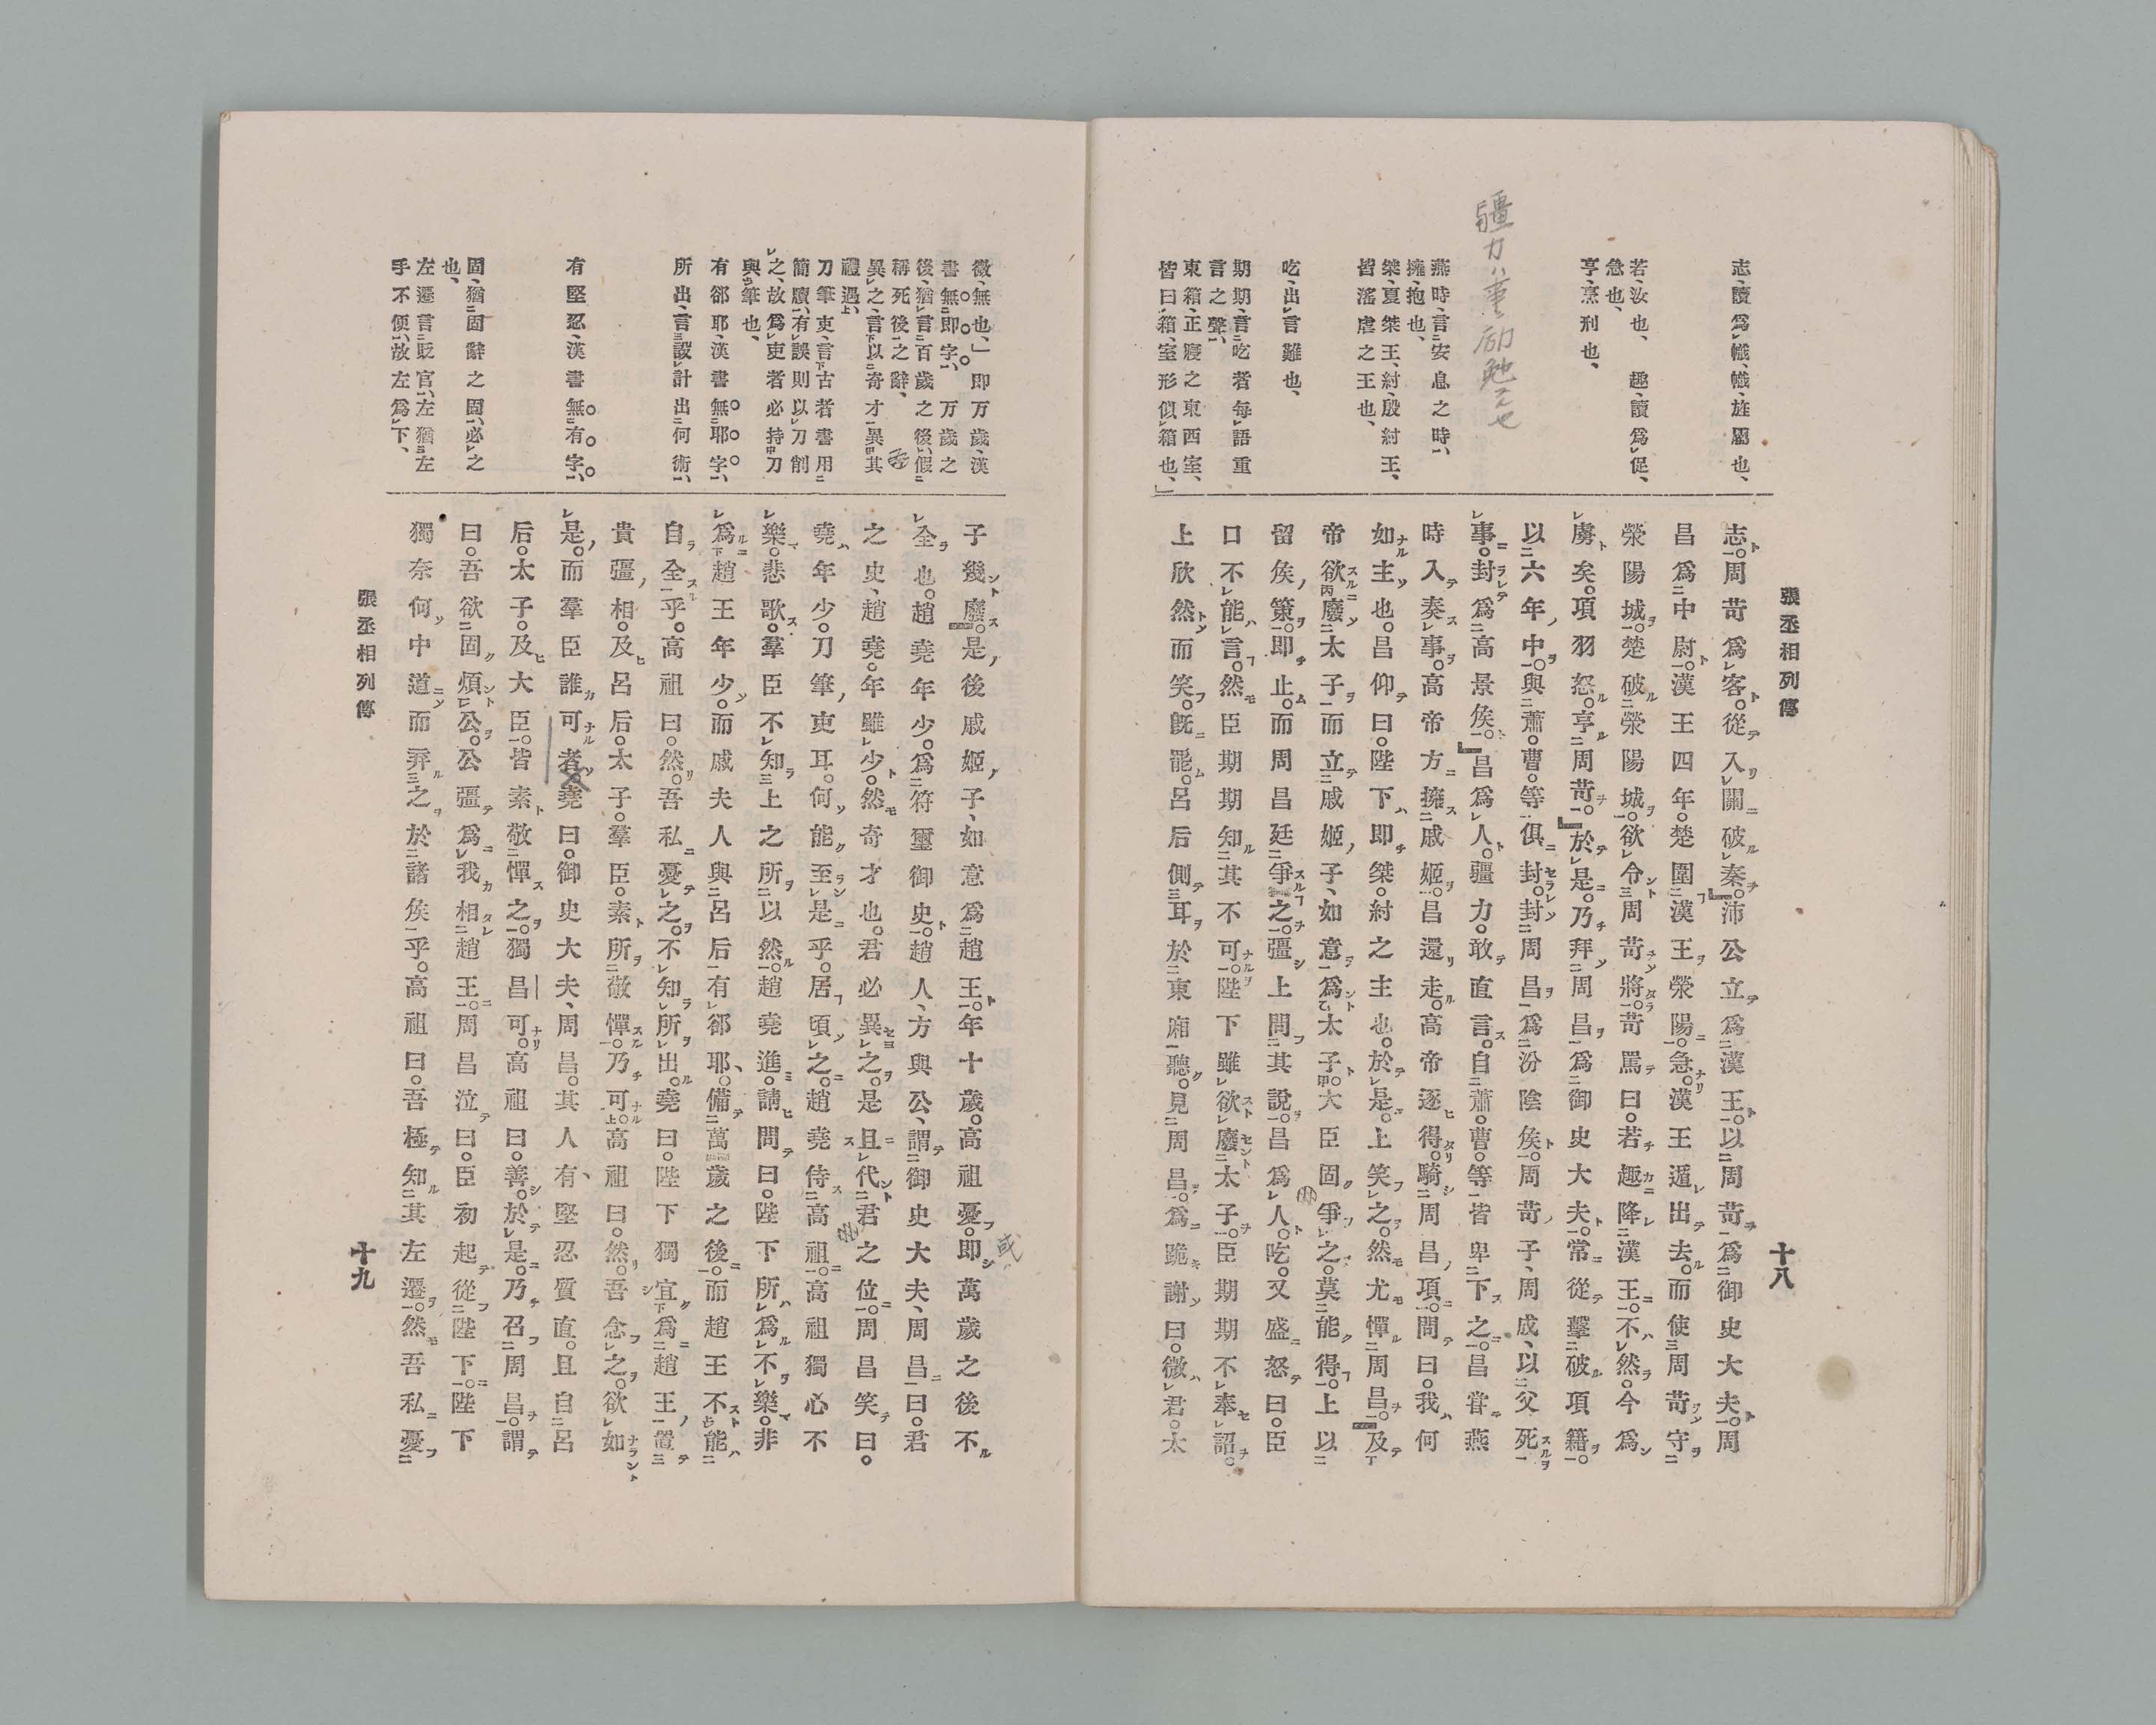 張丞相列傳
十八
志、讀爲幟、幟、旌屬也、
若、汝也、趣、讀爲促、
急也、
亨、烹刑也、
彊力ハ
燕時、言安息之時、
擁、抱也、
桀、夏桀王、紂、殷紂王、
皆淫虐之王也、
吃、出言難也、
期期、言吃者每語重
言之聲、
東箱、正寢之東西室、
皆曰箱、室形似箱也、」
志。周苛爲客。從入關破秦。沛公立爲漢王。以周苛爲御史大夫。周
昌爲中尉。漢王四年。楚圍漢王滎陽。急。漢王遁出去。而使周苛守
滎陽城。楚破滎陽城。欲令周苛將。苛罵曰。若趣降漢王。不然。今爲
虜矣。項羽怒。亨周苛。」於是。乃拜周昌爲御史大夫。常從擊破項籍。
以六年中。與蕭。曹。等俱封。封周昌爲汾陰侯。周苛子、周成、以父死
事。封爲高景侯。」昌爲人。彊力。敢直言。自蕭。曹。等皆卑下之。昌嘗燕
時入奏事。高帝方擁戚姬。昌還走。高帝逐得。騎周昌項。問曰。我何
如主也。昌仰曰。陛下即桀。紂之主也。於是。上笑之。然尤憚周昌。及
帝欲廢太子而立戚姬子、如意爲太子。大臣固爭之。莫能得。上以
留侯策。即止。而周昌廷爭之。彊上問其說。昌爲人。吃。又盛怒曰。臣
口不能言。然臣期期知其不可。陛下雖欲廢太子。臣期期不奉詔。
上欣然而笑。既罷。呂后側耳於東廂聽。見周昌。爲跪謝曰。微君。太
微、無也、」即万歲、漢
書無即字、万歲之
後、猶言百歲之後、假
稱死後之辭、
異之、言以奇才異其
禮遇、
刀筆吏、言古者書用
簡牘、有誤則以刀削
之、故爲吏者必持刀
與筆也、
有郤耶、漢書無耶字、
所出、言設計出何術、
有堅忍、漢書無有字、
固、猶固辭之固、必之
也、
左遷言貶官、左猶左
手不便、故左爲下、
子幾廢。是後戚姬子、如意爲趙王。年十歲。高祖憂。即萬歲之後不
全也。趙堯年少。爲符璽御史。趙人、方與公、謂御史大夫、周昌曰。君
之史、趙堯。年雖少。然奇才也。君必異之。是且代君之位。周昌笑曰。
堯年少。刀筆吏耳。何能至是乎。居頃之。趙堯侍高祖。高祖獨心不
樂。悲歌。羣臣不知上之所以然。趙堯進。請問曰。陛下所爲不樂。非
爲趙王年少。而戚夫人與呂后有郤耶、備萬歲之後。而趙王不能
自全乎。高祖曰。然。吾私憂之。不知所出。堯曰。陛下獨宜爲趙王置
貴彊相。及呂后。太子。羣臣。素所敬憚。乃可。高祖曰。然。吾念之。欲如
是。而羣臣誰可者。堯曰。御史大夫、周昌。其人有堅忍質直。且自呂
后。太子。及大臣。皆素敬憚之。獨昌可。高祖曰。善。於是。乃召周昌。謂
曰。吾欲固煩公。公彊爲我相趙王。周昌泣曰。臣初起從陛下。陛下
獨奈何中道而弃之於諸侯乎。高祖曰。吾極知其左遷。然吾私憂
張丞相列傳
十九